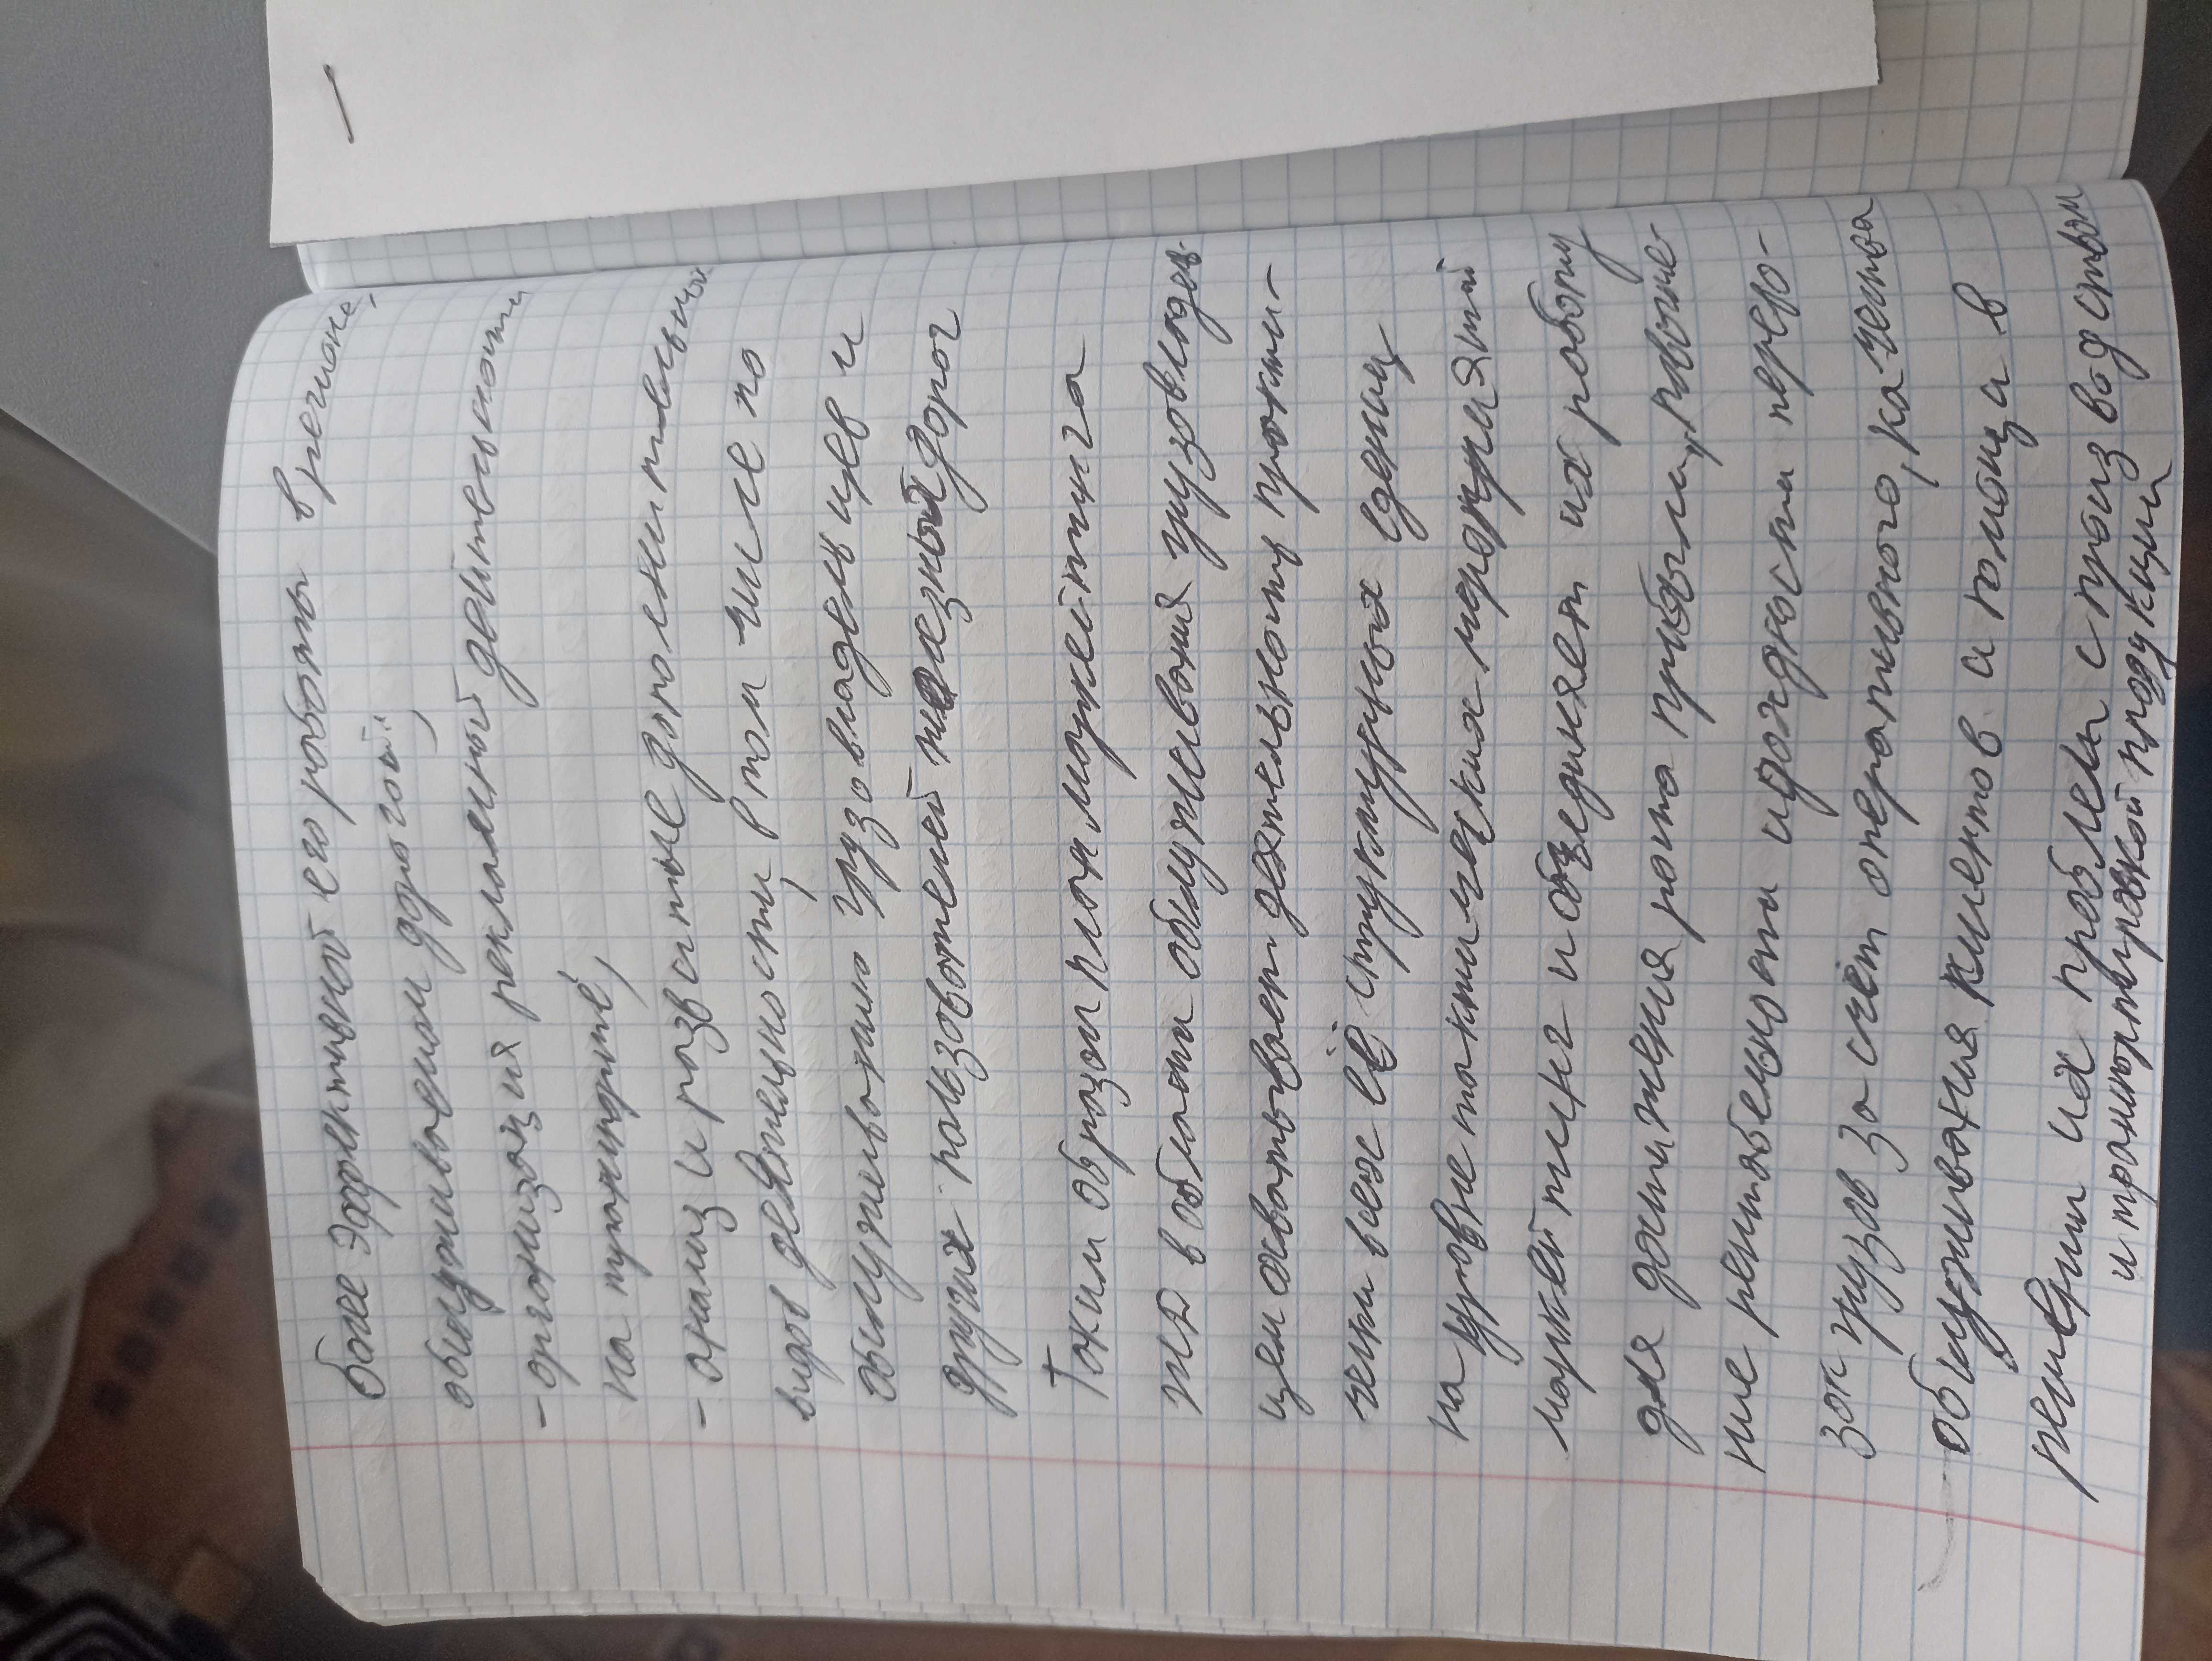 более эффективной его работы в регионе,
обслуживаемом дорогой;
- организация рекламной деятельности
на транспорте;
- анализ и развитие дополнительных
видов деятельности, в том числе по
обслуживанию грузовладельцев и
других пользователей железных дорог
Таким образом план маркетинга
ЖД в области обслуживания грузовладель
цем охватывает деятельность практи-
чески всех её структурных единиц
на уровне тактических мероприятий
маркетинг и объединяет их работу
для достижения роста прибыли, повыше-
ние рентабельности и доходности перево-
зок грузов за счёт оперативного, качества
обслуживания клиентов и помощи в
решении их проблем с производством
и транспортировкой продукции